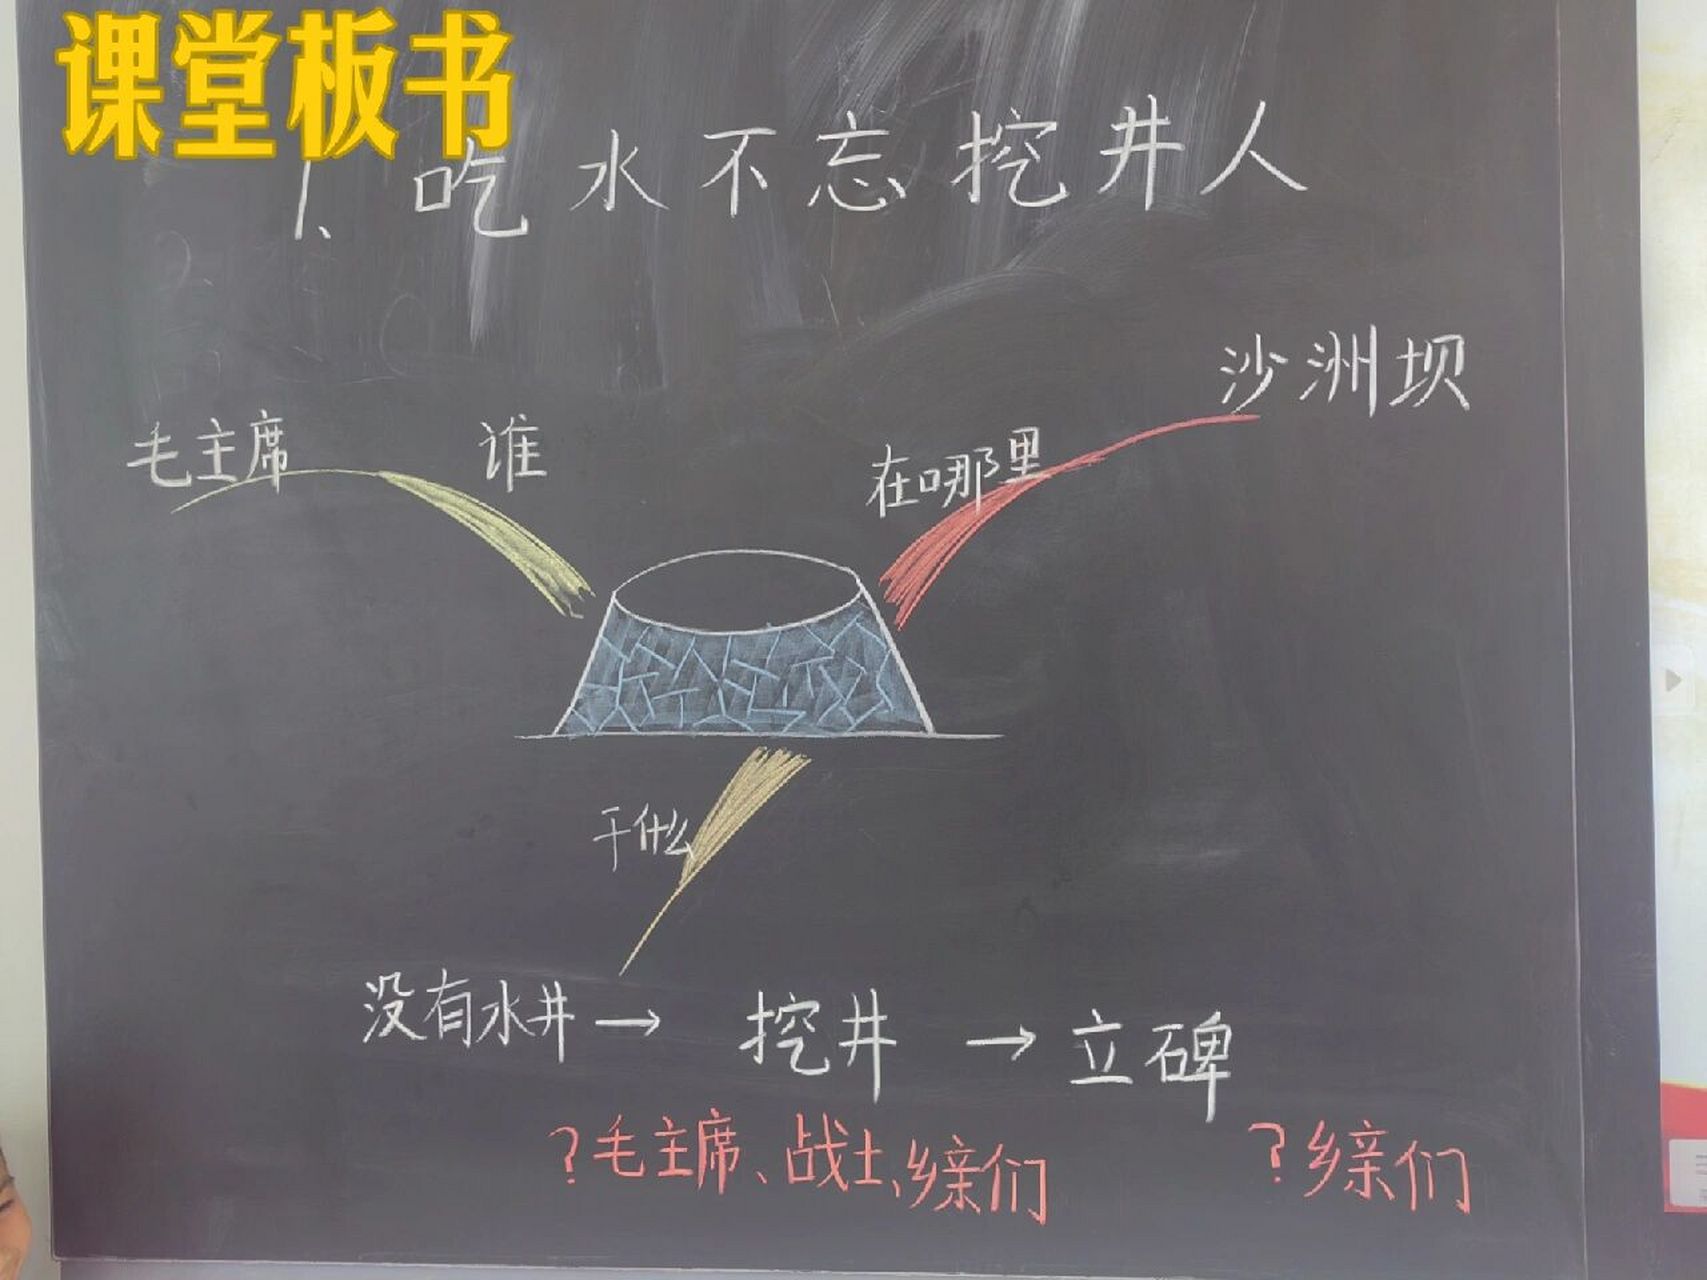 课堂板书
1、吃水不忘挖井人
沙洲坝
毛主席
谁
在哪里
干什么
没有水井→ 挖井 →立碑
?毛主席、战士、乡亲们 ?乡亲们